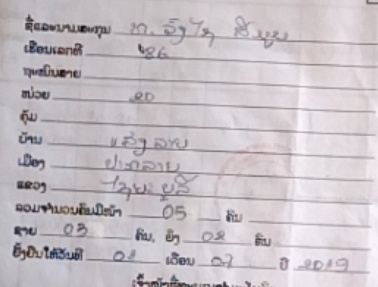 ຊື່ແລະນາມສະກຸນ ທ. ວົງໄຊ ສີບຸນ
ເຮືອນເລກທີ 86
ຖະໜົນສາຍ
ໜ່ວຍ 20
ຄຸ້ມ
ບ້ານ ແສງສະຫວ່າງ
ເມືອງ ປາກລາຍ
ແຂວງ ໄຊຍະບູລີ
ລວມຈຳນວນຄົນມີໜ້າ 05 ຄົນ
ຊາຍ 03 ຄົນ, ຍິງ 02 ຄົນ
ຢັ້ງຢືນໃຫ້ວັນທີ 02 ເດືອນ 07 ປີ 2019